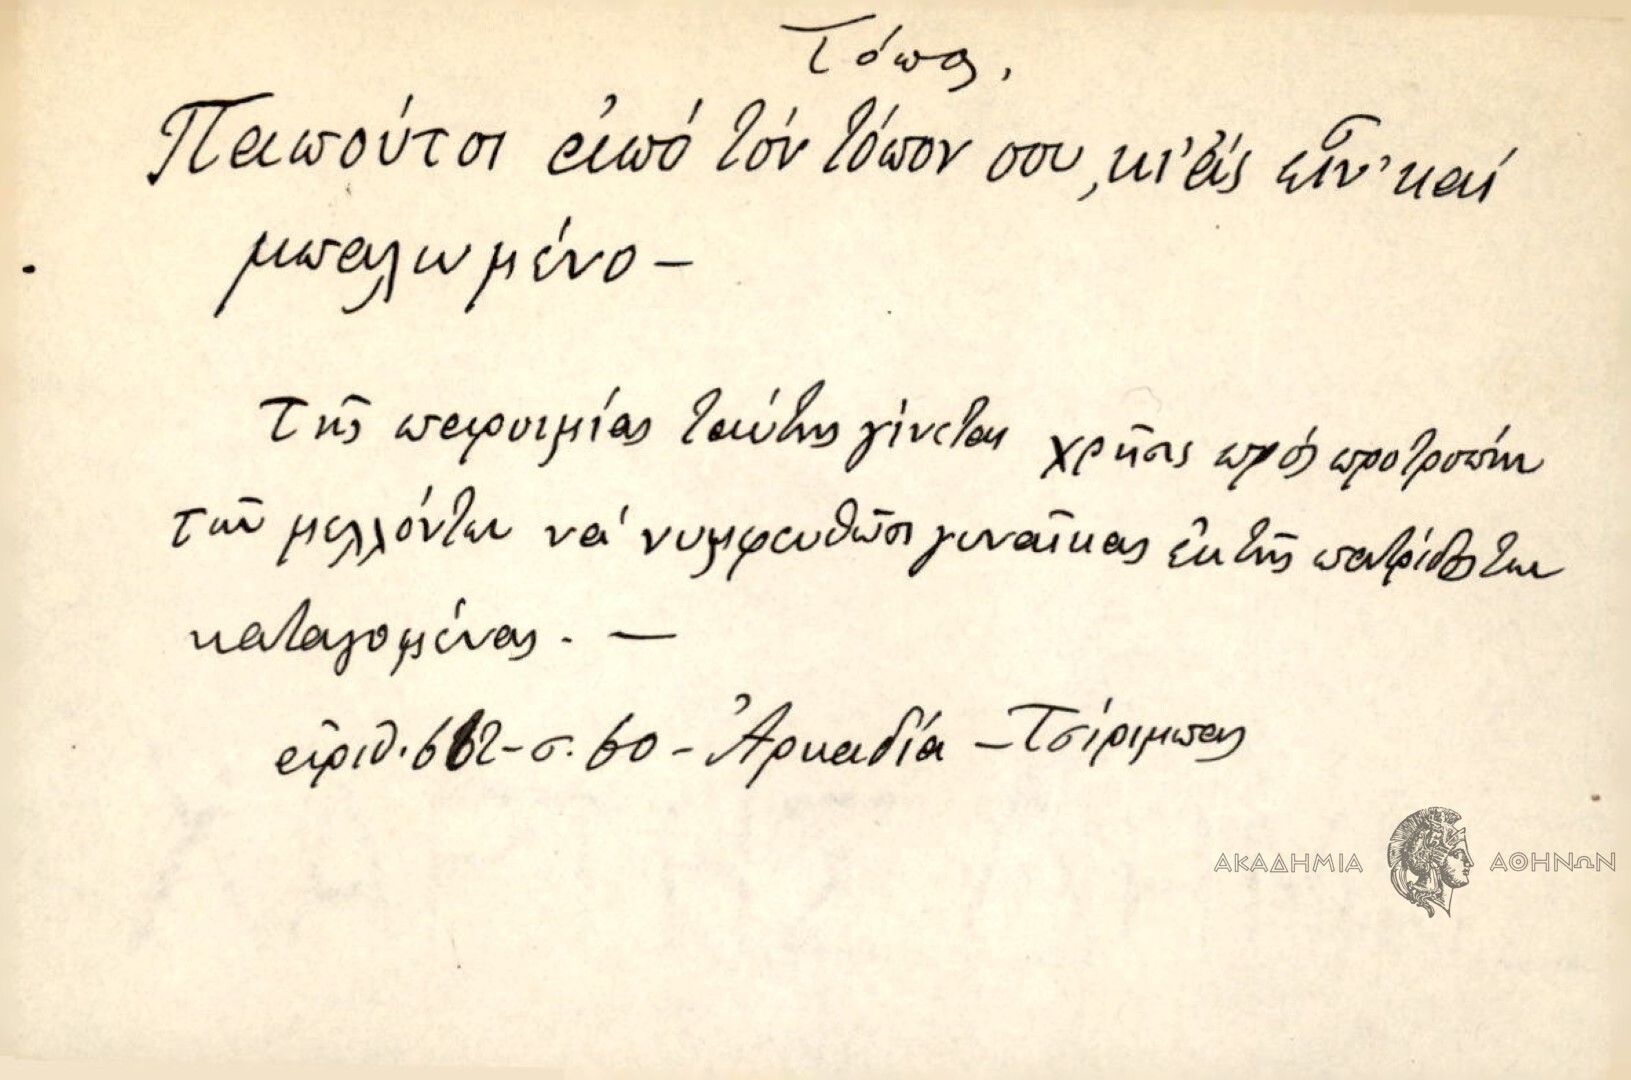 Τόπος,
Παπούτσι ἀπό τόν τόπον σου, κι' ἄς εἶν' καί
μπαλωμένο -
Τῆς παροιμίας ταύτης γίνεται χρῆσις πρός προτροπήν
τῶν μελλόντων νά νυμφευθῶσι γυναῖκας ἐκ τῆς πατρίδος των
καταγομένας. -
ἀριθ. 612 - σ. 60 - Ἀρκαδία - Τσίριμπας
ΑΚΑΔΗΜΙΑ ΑΘΗΝΩΝ